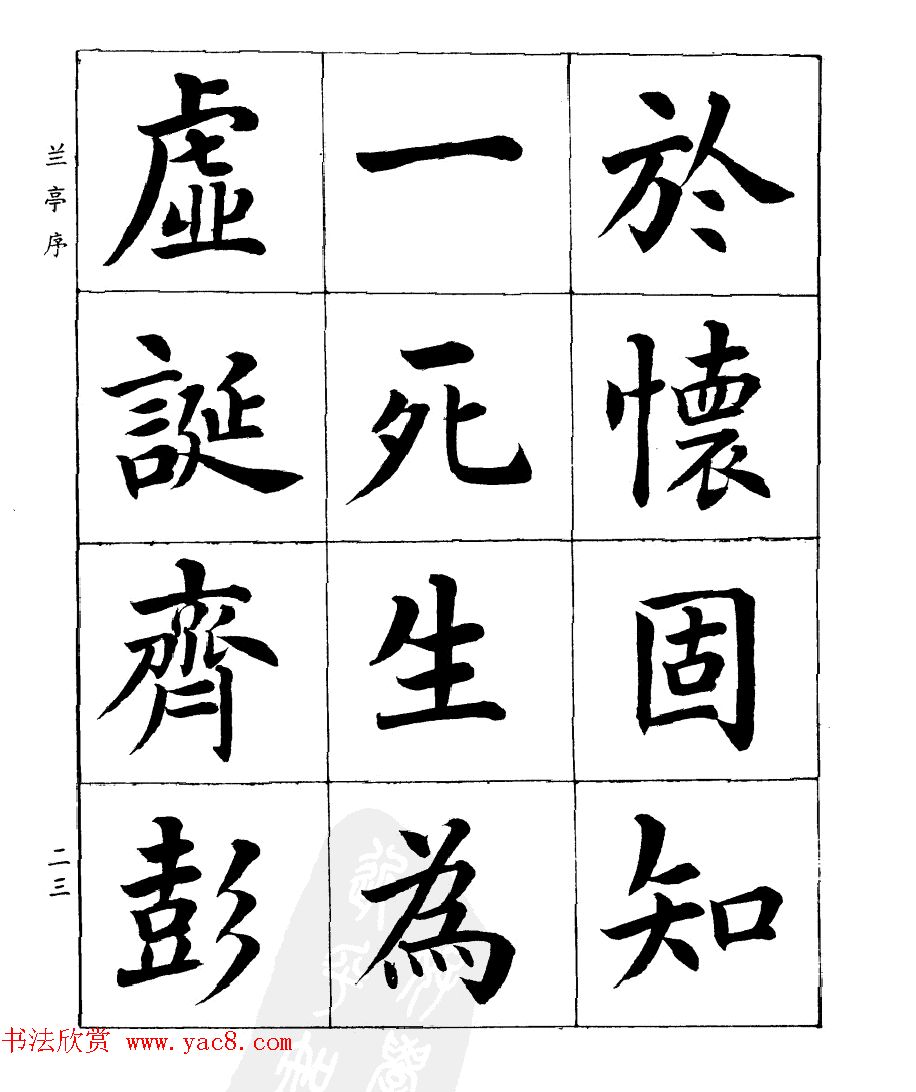 於懷固知
一死生為
虛誕齊彭
兰亭序
二三
书法欣赏 www.yac8.com